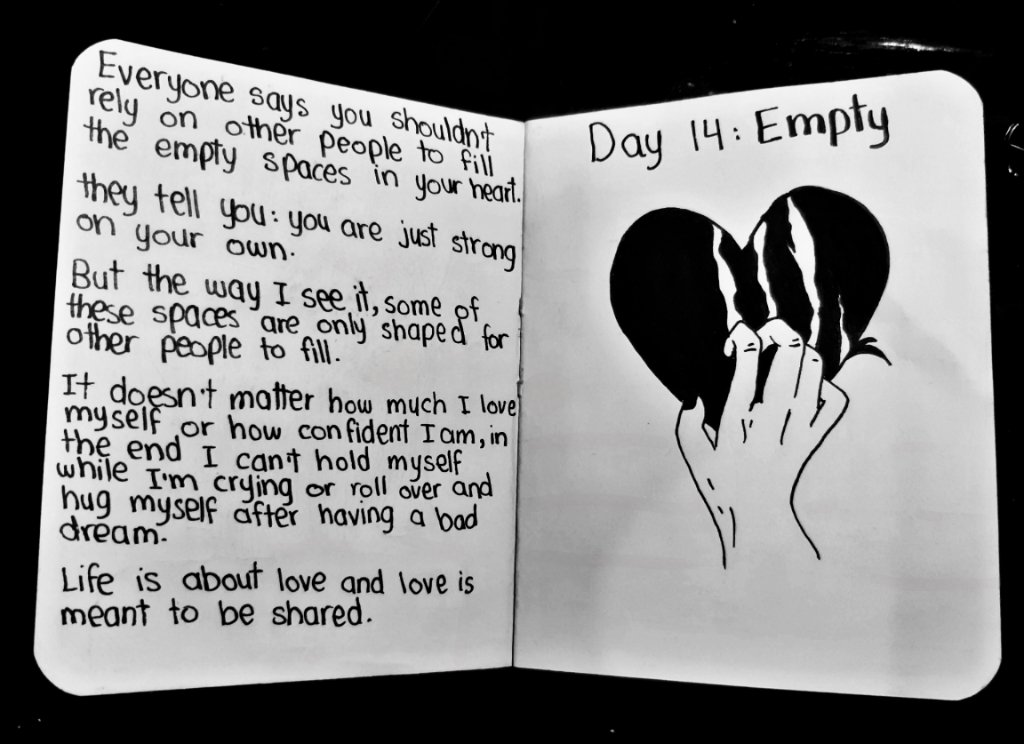 Everyone says you shouldn't
rely on other people to fill
the empty spaces in your heart.
they tell you: you are just strong
on your own.
But the way I see it, some of
these spaces are only shaped for
other people to fill.
It doesn't matter how much I love
myself or how confident I am, in
the end I can't hold myself
while I'm crying or roll over and
hug myself after having a bad
dream.
Life is about love and love is
meant to be shared.
Day 14: Empty